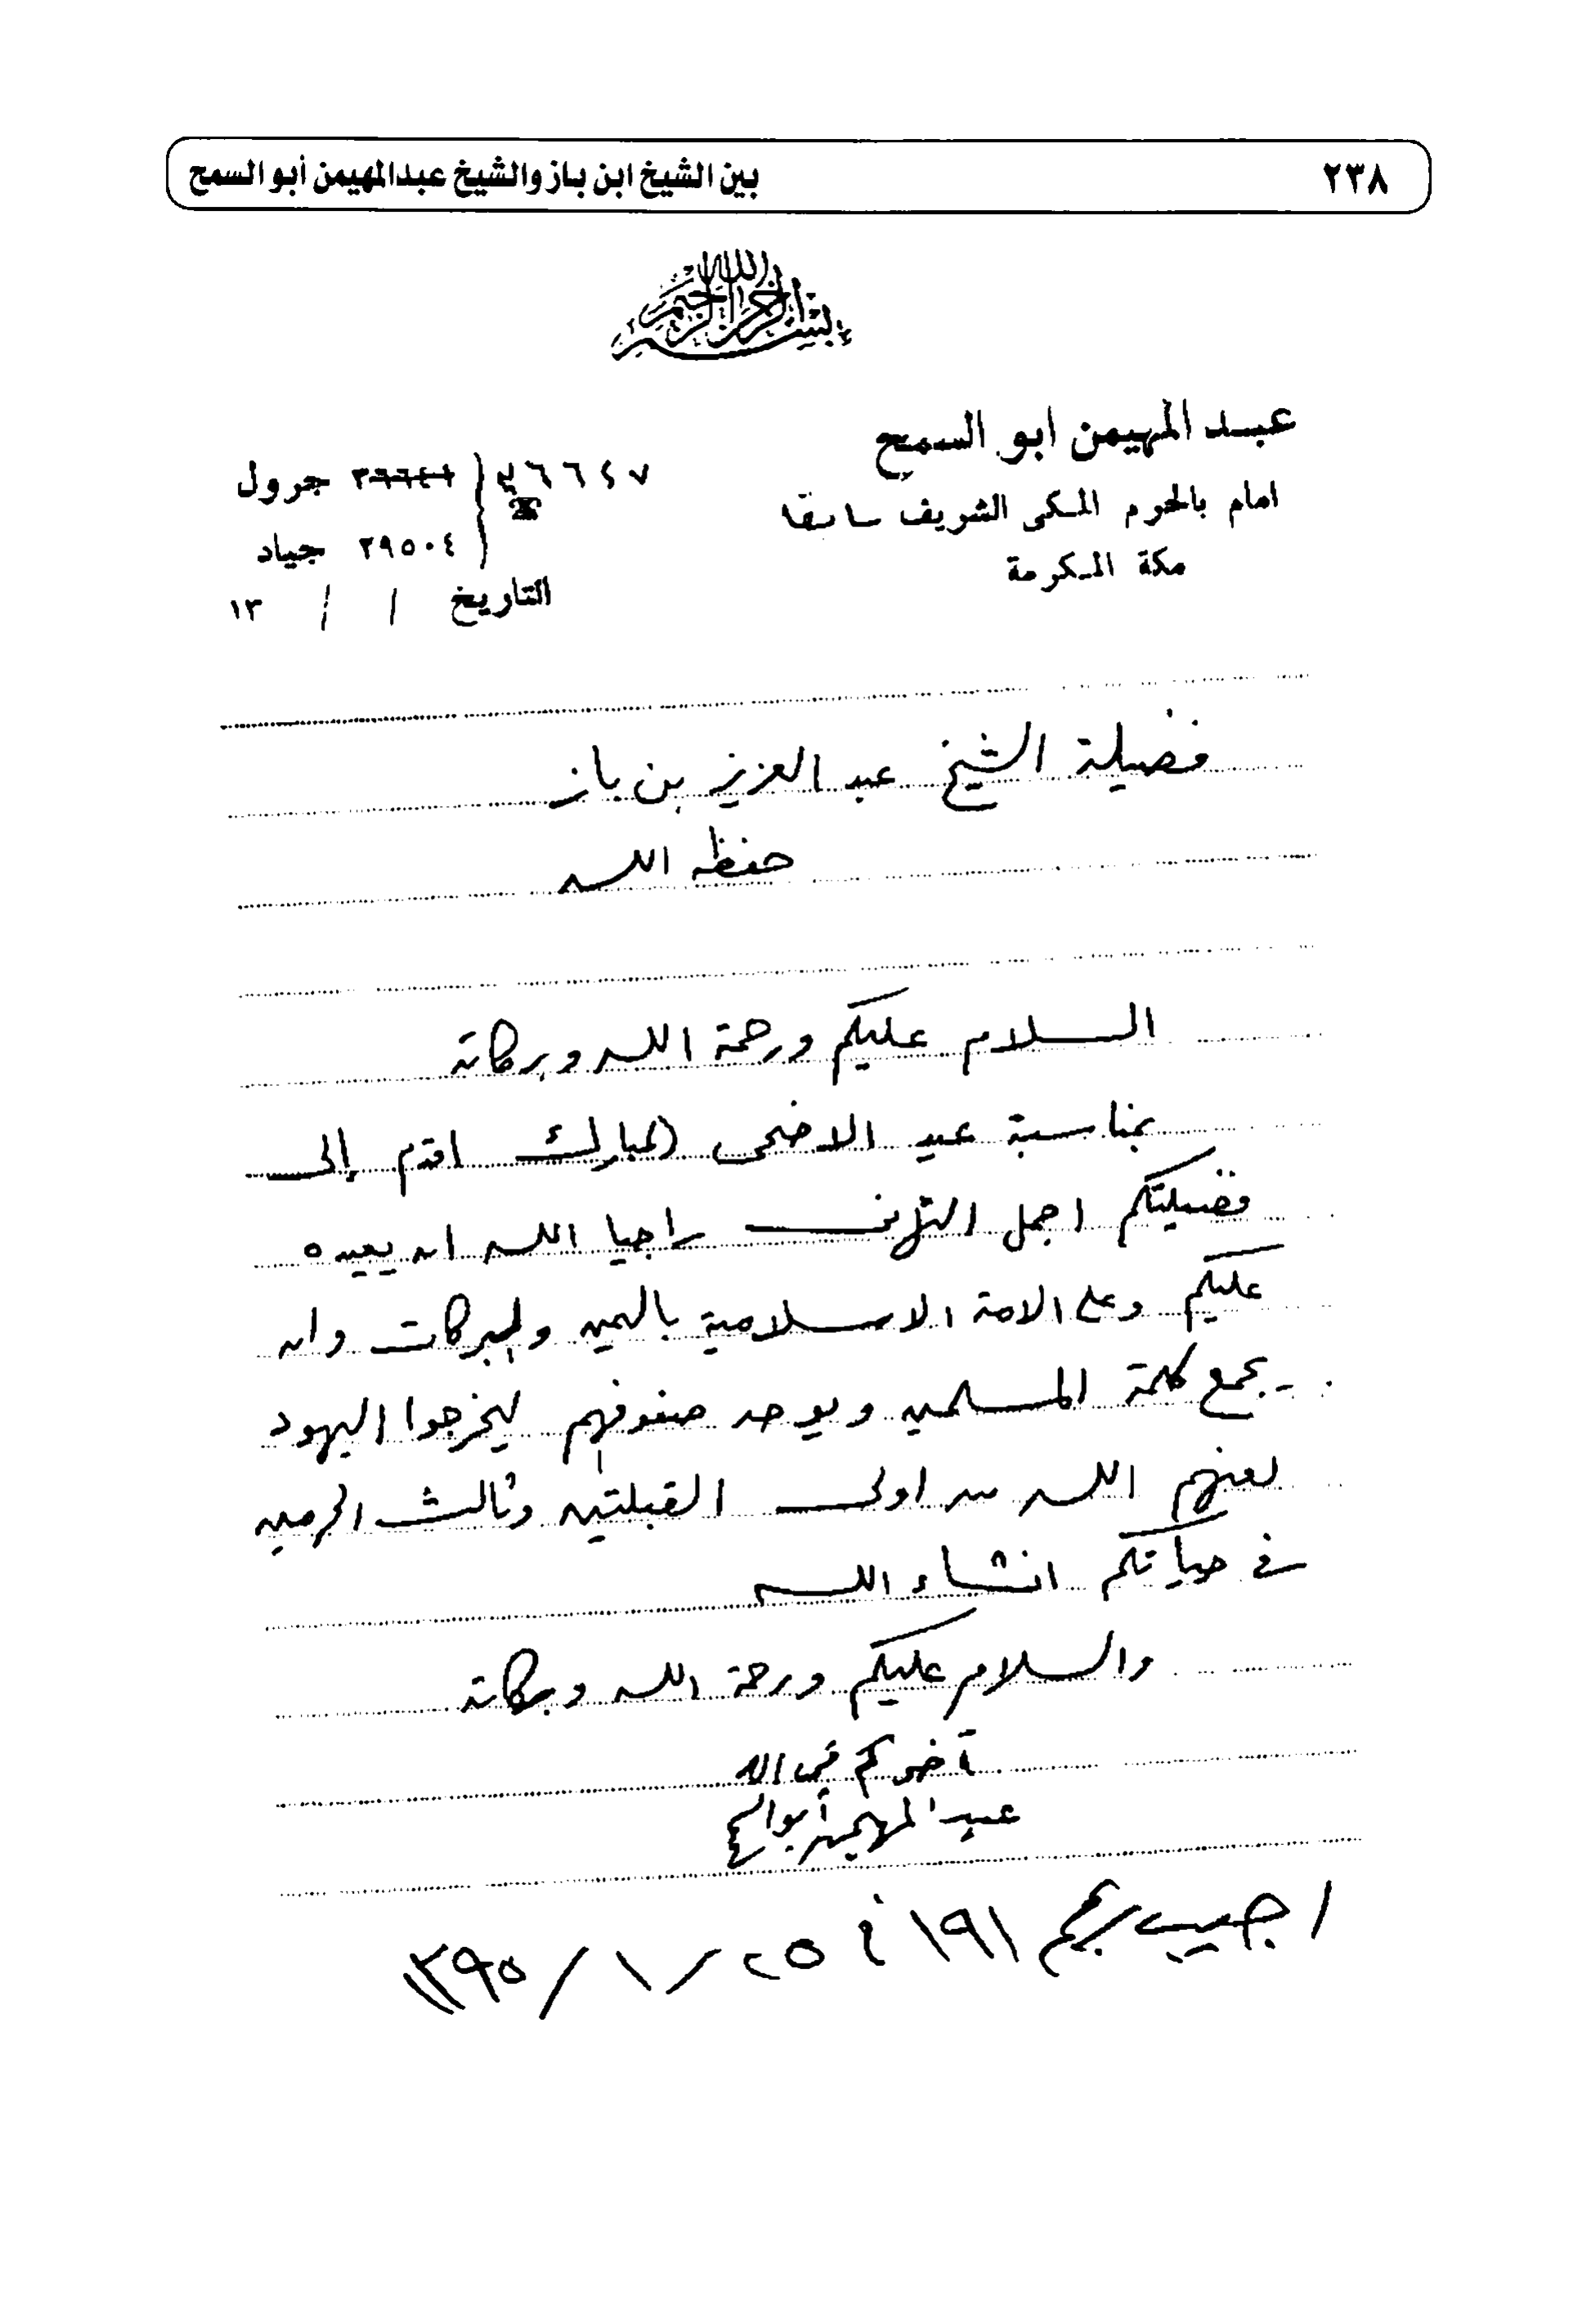 ٢٣٨
بين الشيخ ابن باز والشيخ عبدالمهيمن أبو السمح
بسم الله الرحمن الرحيم
عبد المهيمن ابو السمح
امام بالحرم المكى الشريف سابقا
مكة المكرمة
٣٦٦٤٧
جرول
٢٩٥٠٤ جياد
التاريخ / / ١٣
فضيلة الشيخ عبد العزيز بن باز
حفظه الله
السلام عليكم ورحمة الله وبركاته
بمناسبة عيد الاضحى المبارك اقدم إلى
فضيلتكم اجمل التهانى راجيا الله ان يعيده
عليكم وعلى الامة الاسلامية باليمن والبركات وان
يجمع كلمة المسلمين ويوحد صفوفهم ليخرجوا اليهود
لعنهم الله من اولى القبلتين وثالث الحرمين
فى حياتكم انشاء الله
والسلام عليكم ورحمة الله وبركاته
أخوكم في الله
عبد المهيمن أبو السمح
اجيب برقم ١٩١ في ٢٥/١/١٣٩٥